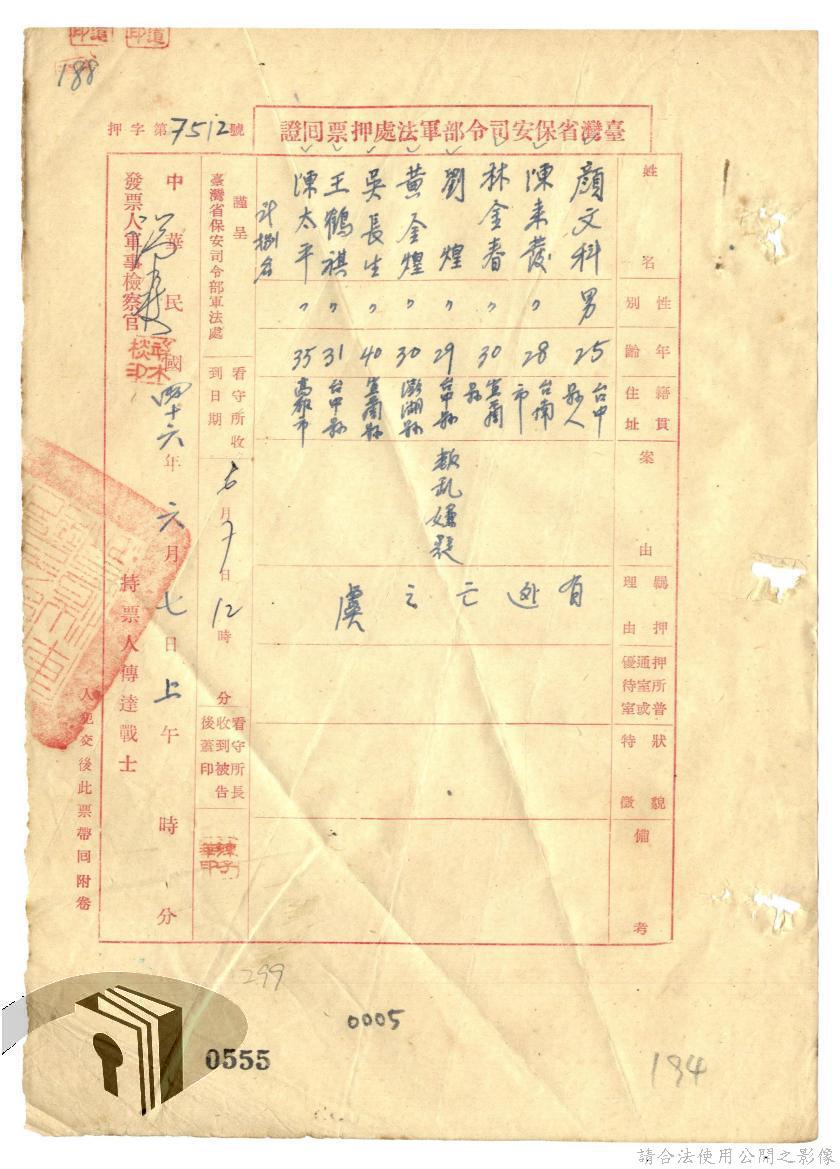 188
臺灣省保安司令部軍法處押票回證
押字第7512號
姓名
性別
年齡
籍貫住址
案由
羈押理由
押所普通室或優待室
狀貌特徵
備考
顏文科 男 25 台中縣人
陳来發 〃 28 台南市
林金春 〃 30 宜蘭縣
劉煌 〃 29 台中縣
黃金煌 〃 30 澎湖縣
吳長生 〃 40 宜蘭縣
王鶴祺 〃 31 台中縣
陳太平 〃 35 高雄市
計捌名
叛乱嫌疑
有逃亡之虞
謹呈
臺灣省保安司令部軍法處
看守所收到日期
六月7日12時 分
看守所長收到被告後蓋印
中華民國四十六年六月七日上午 時 分
發票人軍事檢察官
持票人傳達戰士
人犯交後此票帶回附卷
299
0005
0555
184
請合法使用公開之影像